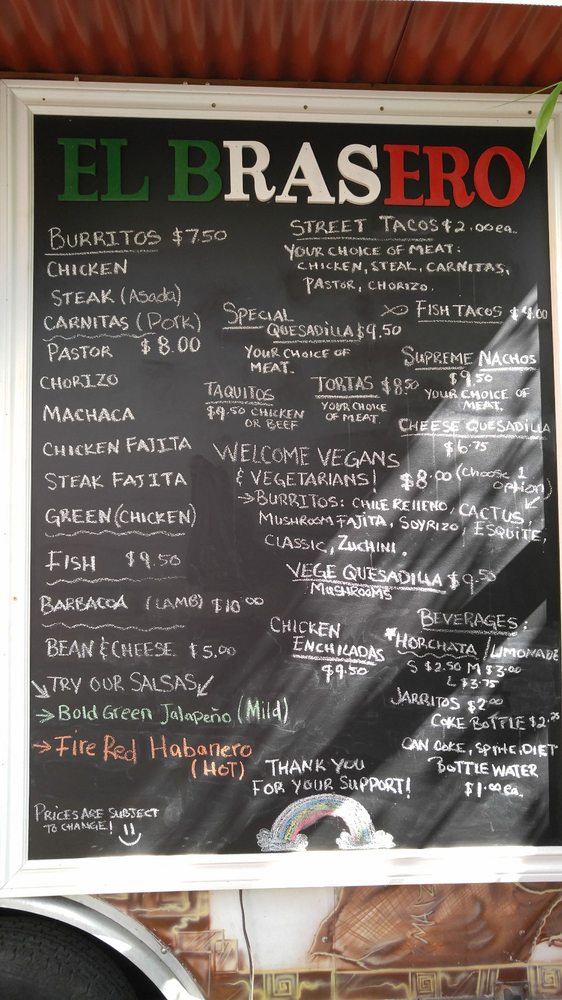 EL BRASERO
BURRITOS $7.50
CHICKEN
STEAK (Asada)
CARNITAS (Pork)
PASTOR $8.00
CHORIZO
MACHACA
CHICKEN FAJITA
STEAK FAJITA
GREEN (CHICKEN)
FISH $9.50
BARBACOA (LAMB) $10.00
BEAN & CHEESE $5.00
TRY OUR SALSAS
→ Bold Green Jalapeño (Mild)
→ Fire Red Habanero
(HOT)
PRICES ARE SUBJECT
TO CHANGE!
STREET TACOS $2.00 ea.
YOUR CHOICE OF MEAT:
CHICKEN, STEAK, CARNITAS,
PASTOR, CHORIZO.
FISH TACOS $4.00
SPECIAL
QUESADILLA $9.50
YOUR CHOICE OF
MEAT.
SUPREME NACHOS
$9.50
YOUR CHOICE OF
MEAT.
TAQUITOS
$9.50 CHICKEN
OR BEEF
TORTAS $8.50
YOUR CHOICE
OF MEAT.
CHEESE QUESADILLA
$6.75
WELCOME VEGANS
& VEGETARIANS! $8.00 (choose 1
option)
→ BURRITOS: CHILE RELLENO, CACTUS,
MUSHROOM FAJITA, SOYRIZO, ESQUITE,
CLASSIC, ZUCHINI.
VEGE QUESADILLA $9.50
MUSHROOMS
CHICKEN
ENCHILADAS
$9.50
BEVERAGES:
*HORCHATA / LIMONADE
S $2.50 M $3.00
L $3.75
JARRITOS $2.00
COKE BOTTLE $2.75
CAN COKE, SPRITE, DIET
BOTTLE WATER
$1.00 ea.
THANK YOU
FOR YOUR SUPPORT!